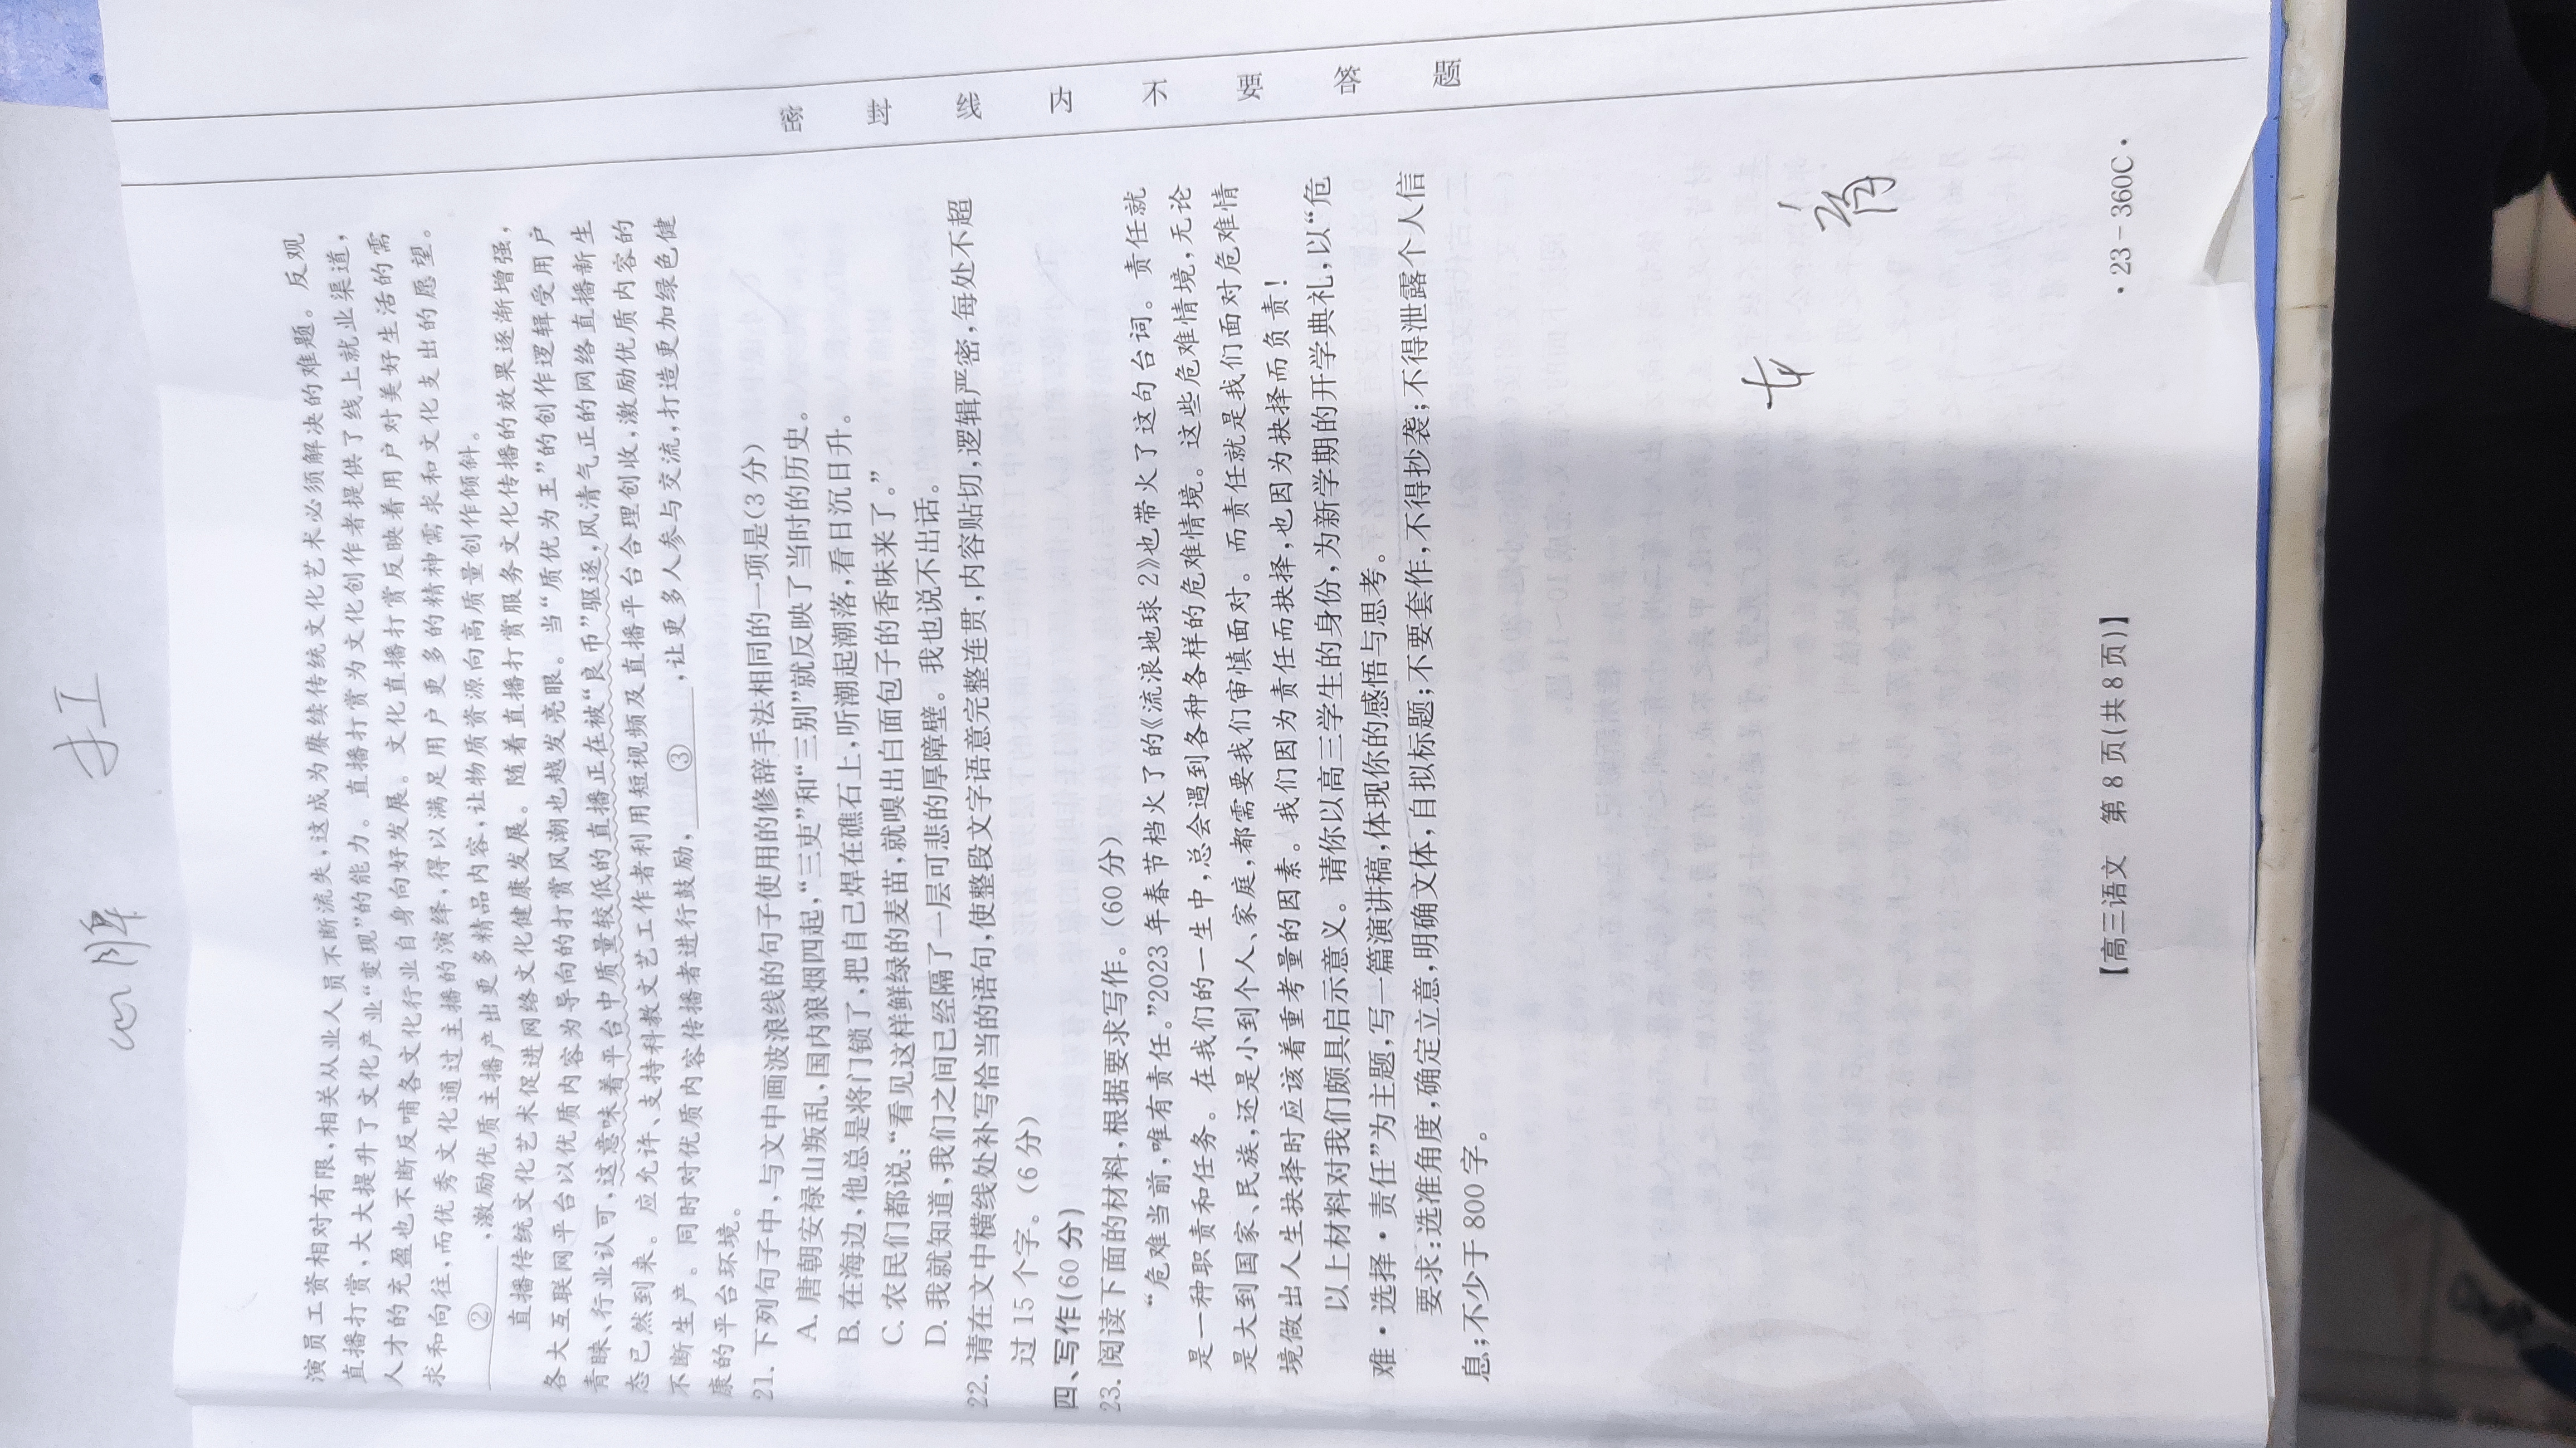 演员工资相对有限,相关从业人员不断流失,这成为赓续传统文化艺术必须解决的难题。反观
直播打赏,大大提升了文化产业“变现”的能力。直播打赏为文化创作者提供了线上就业渠道,
人才的充盈也不断反哺各文化行业自身向好发展。文化直播打赏反映着用户对美好生活的需
求和向往,而优秀文化通过主播的演绎,得以满足用户更多的精神需求和文化支出的愿望。
②,激励优质主播产出更多精品内容,让物质资源向高质量创作倾斜。
直播传统文化艺术促进网络文化健康发展。随着直播打赏服务文化传播的效果逐渐增强,
各大互联网平台以优质内容为导向的打赏风潮也越发亮眼。当“质优为王”的创作逻辑受用户
青睐、行业认可,这意味着平台中质量较低的直播正在被“良币”驱逐,风清气正的网络直播新生
态已然到来。应允许、支持科教文艺工作者利用短视频及直播平台合理创收,激励优质内容的
不断生产。同时对优质内容传播者进行鼓励,③,让更多人参与交流,打造更加绿色健
康的平台环境。
21. 下列句子中,与文中画波浪线的句子使用的修辞手法相同的一项是(3 分)
A. 唐朝安禄山叛乱,国内狼烟四起,“三吏”和“三别”就反映了当时的历史。
B. 在海边,他总是将门锁了,把自己焊在礁石上,听潮起潮落,看日沉日升。
C. 农民们都说:“看见这样鲜绿的麦苗,就嗅出白面包子的香味来了。”
D. 我就知道,我们之间已经隔了一层可悲的厚障壁。我也说不出话。
22. 请在文中横线处补写恰当的语句,使整段文字语意完整连贯,内容贴切,逻辑严密,每处不超
过 15 个字。(6 分)
四、写作(60 分)
23. 阅读下面的材料,根据要求写作。(60 分)
“危难当前,唯有责任。”2023 年春节档火了的《流浪地球 2》也带火了这句台词。责任就
是一种职责和任务。在我们的一生中,总会遇到各种各样的危难情境。这些危难情境,无论
是大到国家、民族,还是小到个人、家庭,都需要我们审慎面对。而责任就是我们面对危难情
境做出人生抉择时应该着重考量的因素。我们因为责任而抉择,也因为抉择而负责!
以上材料对我们颇具启示意义。请你以高三学生的身份,为新学期的开学典礼,以“危
难·选择·责任”为主题,写一篇演讲稿,体现你的感悟与思考。
要求:选准角度,确定立意,明确文体,自拟标题;不要套作,不得抄袭;不得泄露个人信
息;不少于 800 字。
【高三语文 第 8 页(共 8 页)】
·23-360C·
密 封 线 内 不 要 答 题